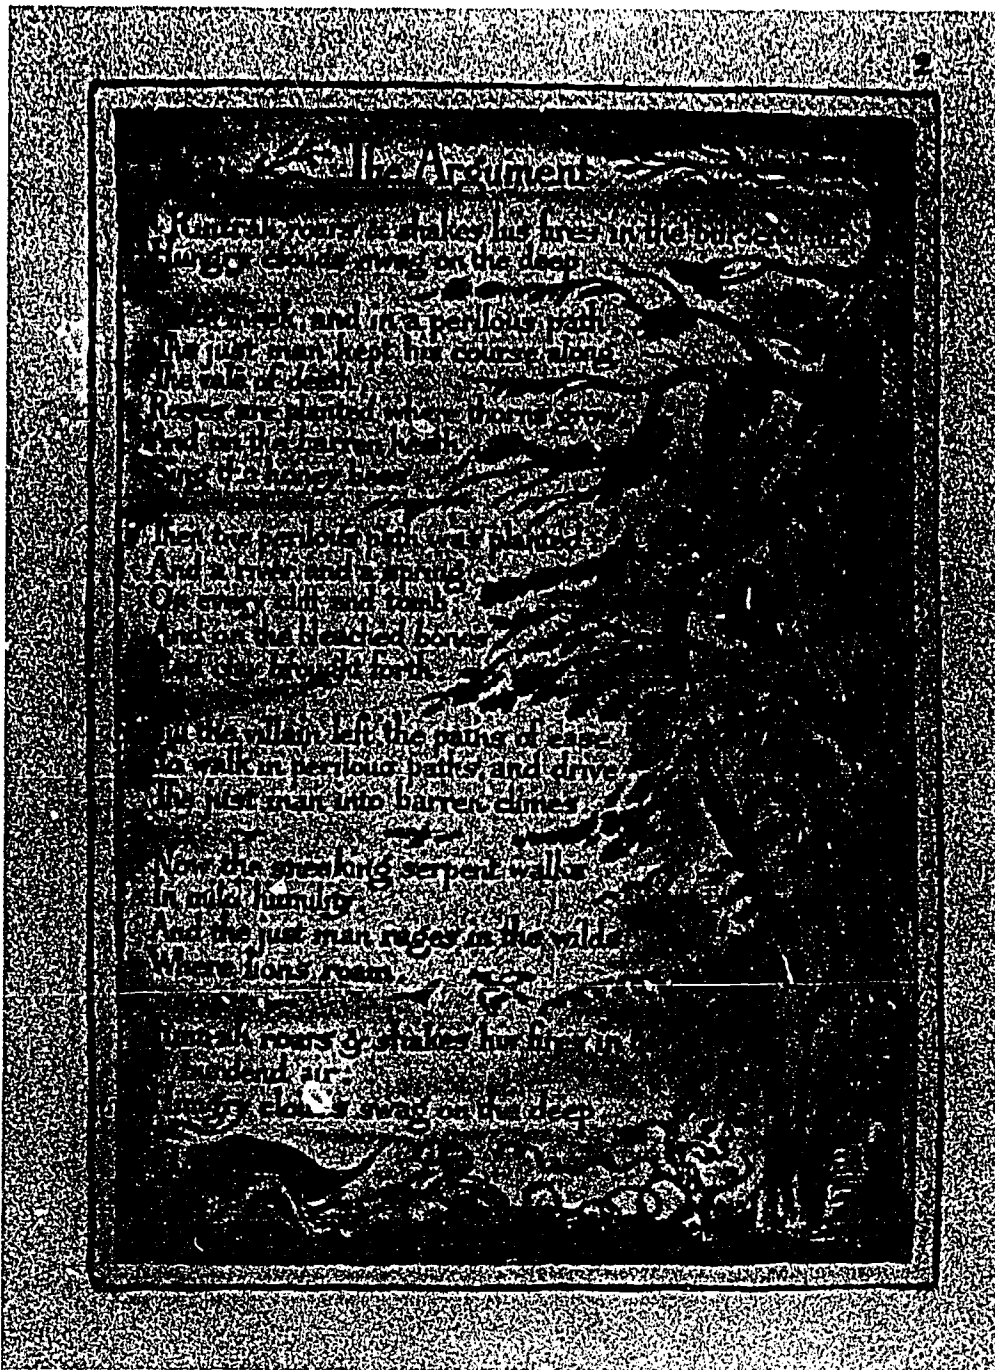 2
The Argument
Rintrah roars & shakes his fires in the
Hungry clouds swag on the deep
meek, and in a perilous path,
The just man kept his course along
The vale of death.
Roses are planted where thorns grow
And on the barren heath
Sing the honey bees.
Then the perilous path was planted:
And a river and a spring
On every cliff and tomb
And on the bleached bones
Red clay brought forth.
the villain left the paths of ease,
To walk in perilous paths, and drive
The just man into barren climes
Now the sneaking serpent walks
In mild humility,
And the just man rages in the wilds
Where lions roam.
Rintrah roars & shakes his fires in
burdend air;
Hungry clouds swag on the deep